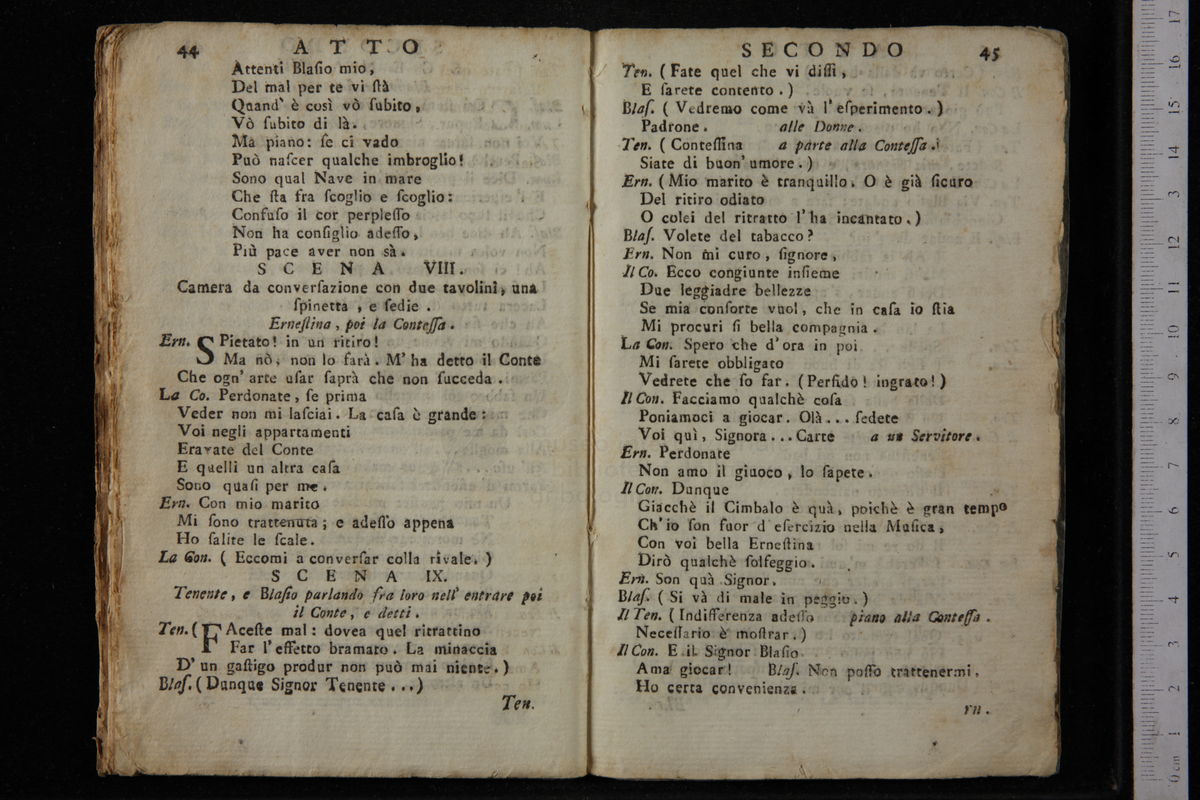 44 ATTO
Attenti Blaſio mio,
Del mal per te vi ſtà
Quand' è così vò ſubito,
Vò ſubito di là.
Ma piano: ſe ci vado
Può naſcer qualche imbroglio!
Sono qual Nave in mare
Che ſta fra ſcoglio e ſcoglio:
Confuſo il cor perpleſſo
Non ha conſiglio adeſſo,
Più pace aver non sà.
SCENA VIII.
Camera da converſazione con due tavolini, una
ſpinetta, e ſedie.
Erneſtina, poi la Conteſſa.
Ern. SPietato! in un ritiro!
Ma nò, non lo farà. M' ha detto il Conte
Che ogn' arte uſar ſaprà che non ſucceda.
La Co. Perdonate, ſe prima
Veder non mi laſciai. La caſa è grande:
Voi negli appartamenti
Eravate del Conte
E quelli un altra caſa
Sono quaſi per me.
Ern. Con mio marito
Mi ſono trattenuta; e adeſſo appena
Ho ſalite le ſcale.
La Con. (Eccomi a converſar colla rivale.)
SCENA IX.
Tenente, e Blaſio parlando fra loro nell' entrare poi
il Conte, e detti.
Ten. (FAceſte mal: dovea quel ritrattino
Far l' effetto bramato. La minaccia
D' un gaſtigo produr non può mai niente.)
Blaſ. (Dunque Signor Tenente...)
Ten.
SECONDO 45
Ten. (Fate quel che vi diſſi,
E ſarete contento.)
Blaſ. (Vedremo come và l' eſperimento.)
Padrone. alle Donne.
Ten. (Conteſſina a parte alla Conteſſa.
Siate di buon' umore.)
Ern. (Mio marito è tranquillo. O è già ſicuro
Del ritiro odiato
O colei del ritratto l' ha incantato.)
Blaſ. Volete del tabacco?
Ern. Non mi curo, ſignore,
Il Co. Ecco congiunte inſieme
Due leggiadre bellezze
Se mia conſorte vuol, che in caſa io ſtia
Mi procuri ſi bella compagnia.
La Con. Spero che d' ora in poi
Mi ſarete obbligato
Vedrete che ſo far. (Perfido! ingrato!)
Il Con. Facciamo qualchè coſa
Poniamoci a giocar. Olà... ſedete
Voi quì, Signora... Carte a un Servitore.
Ern. Perdonate
Non amo il giuoco, lo ſapete.
Il Con. Dunque
Giacchè il Cimbalo è quà, poichè è gran tempo
Ch' io ſon fuor d eſercizio nella Muſica,
Con voi bella Erneſtina
Dirò qualchè ſolfeggio.
Ern. Son quà Signor.
Blaſ. (Si và di male in peggio.)
Il Ten. (Indifferenza adeſſo piano alla Conteſſa.
Neceſſario è moſtrar.)
Il Con. E il Signor Blaſio
Ama giocar! Blaſ. Non poſſo trattenermi,
Ho certa convenienza.